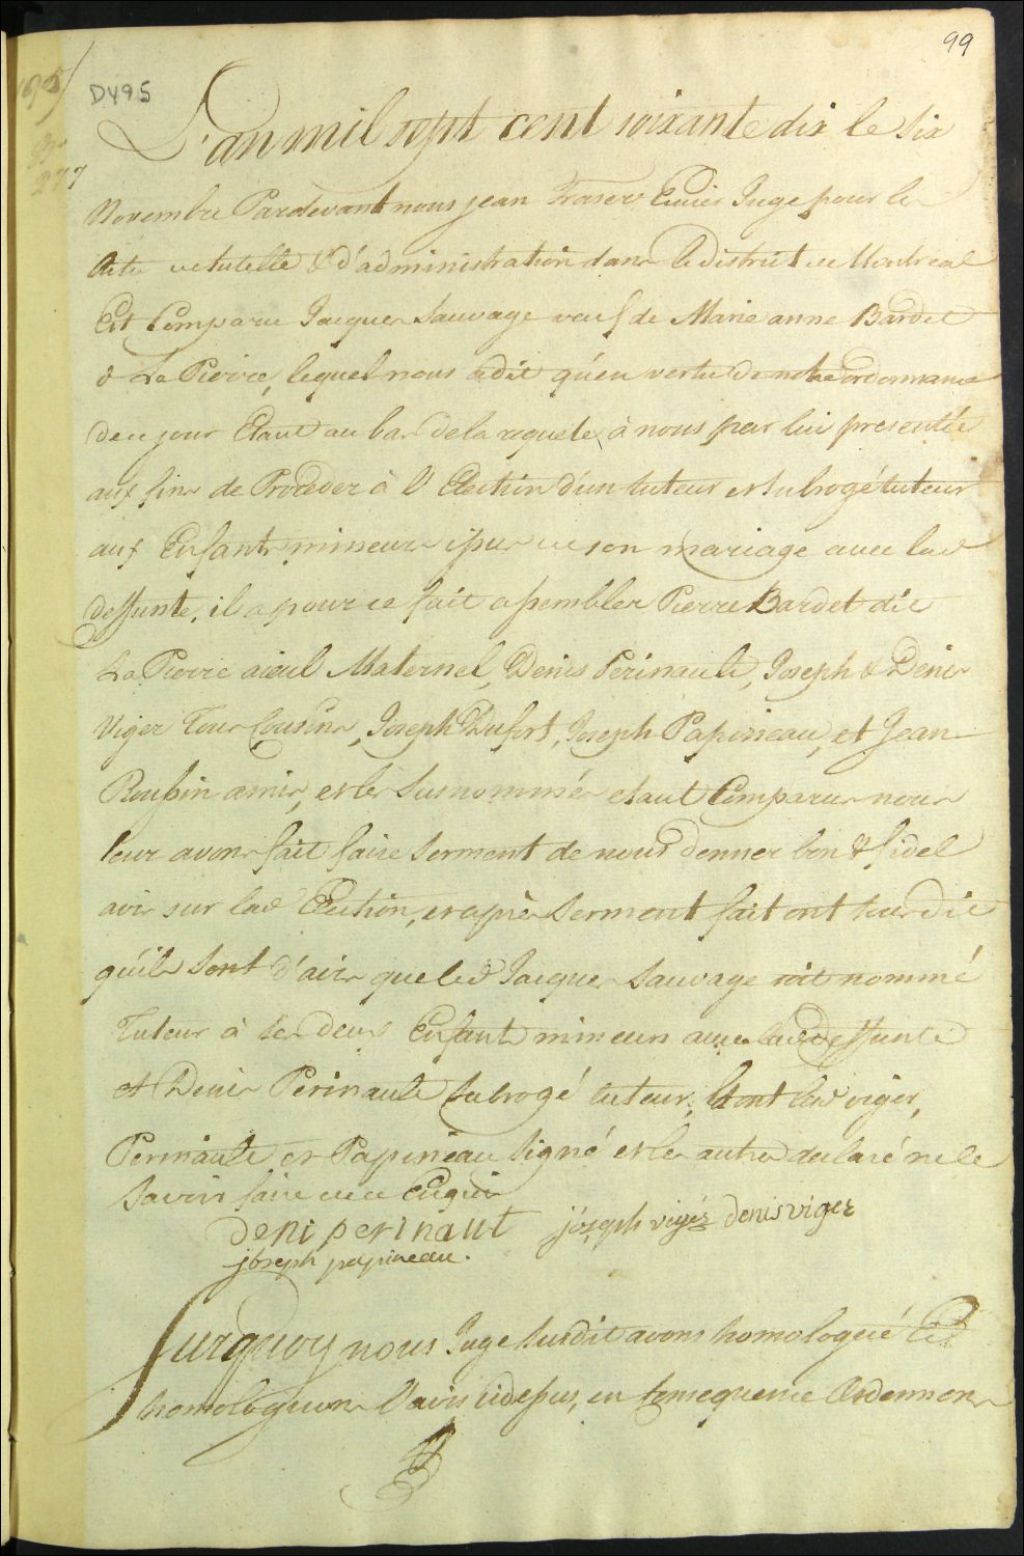 99
D495
277
L'an mil sept cent soixante dix le six
Novembre Pardevant nous jean Fraser Ecuier Juge pour les
Actes de tutelle & d'administration dans le district de Montreal
Est Comparu Jacques Sauvage veuf de Marie anne Bardet
d La Pierre, lequel nous a dit qu'en vertu de notre ordonnance
de ce jour Etant au bas de la requete à nous par lui presentée
aux fins de Proceder à l'Election d'un tuteur et subrogé tuteur
aux Enfants mineurs issus de son mariage avec lad
deffunte, il a pour ce fait assembler Pierre Bardet dit
La Pierre aieul Maternel, Denis Perinault, Joseph & Denis
Viger Tous Cousins, Joseph Dufort, Joseph Papineau, et Jean
Roussin amis, et les susnommés etant Comparus nous
leur avons fait faire serment de nous donner bon & fidel
avis sur lad Election, et après serment fait ont tous dit
qu'ils sont d'avis que led Jacques Sauvage soit nommé
Tuteur à ses deux Enfants mineurs avec lad deffunte
et Denis Perinault subrogé tuteur, & ont lesd viger,
Perinault et Papineau signé et les autres declaré ne le
savoir faire de ce Enquis
deni perinaut joseph viger denis viger
joseph papineau.
Surquoy nous Juge susdit avons homologué Et
homologuons l'avis cidessus, en consequence Ordonnons